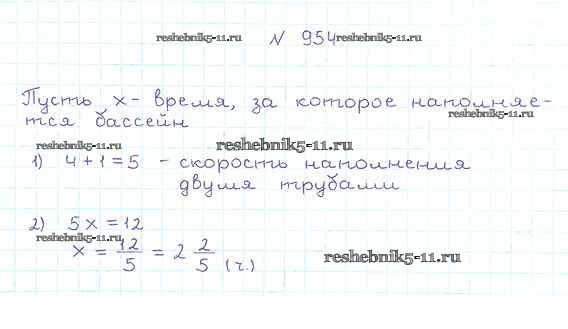 reshebnik5-11.ru № 954 reshebnik5-11.ru
Пусть x - время, за которое наполняе-
reshebnik5-11.ru
тся бассейн
reshebnik5-11.ru reshebnik5-11.ru
1) 4 + 1 = 5 - скорость наполнения
двумя трубами
2) 5x = 12
reshebnik5-11.ru
x = 12/5 = 2 2/5 (ч.)
reshebnik5-11.ru